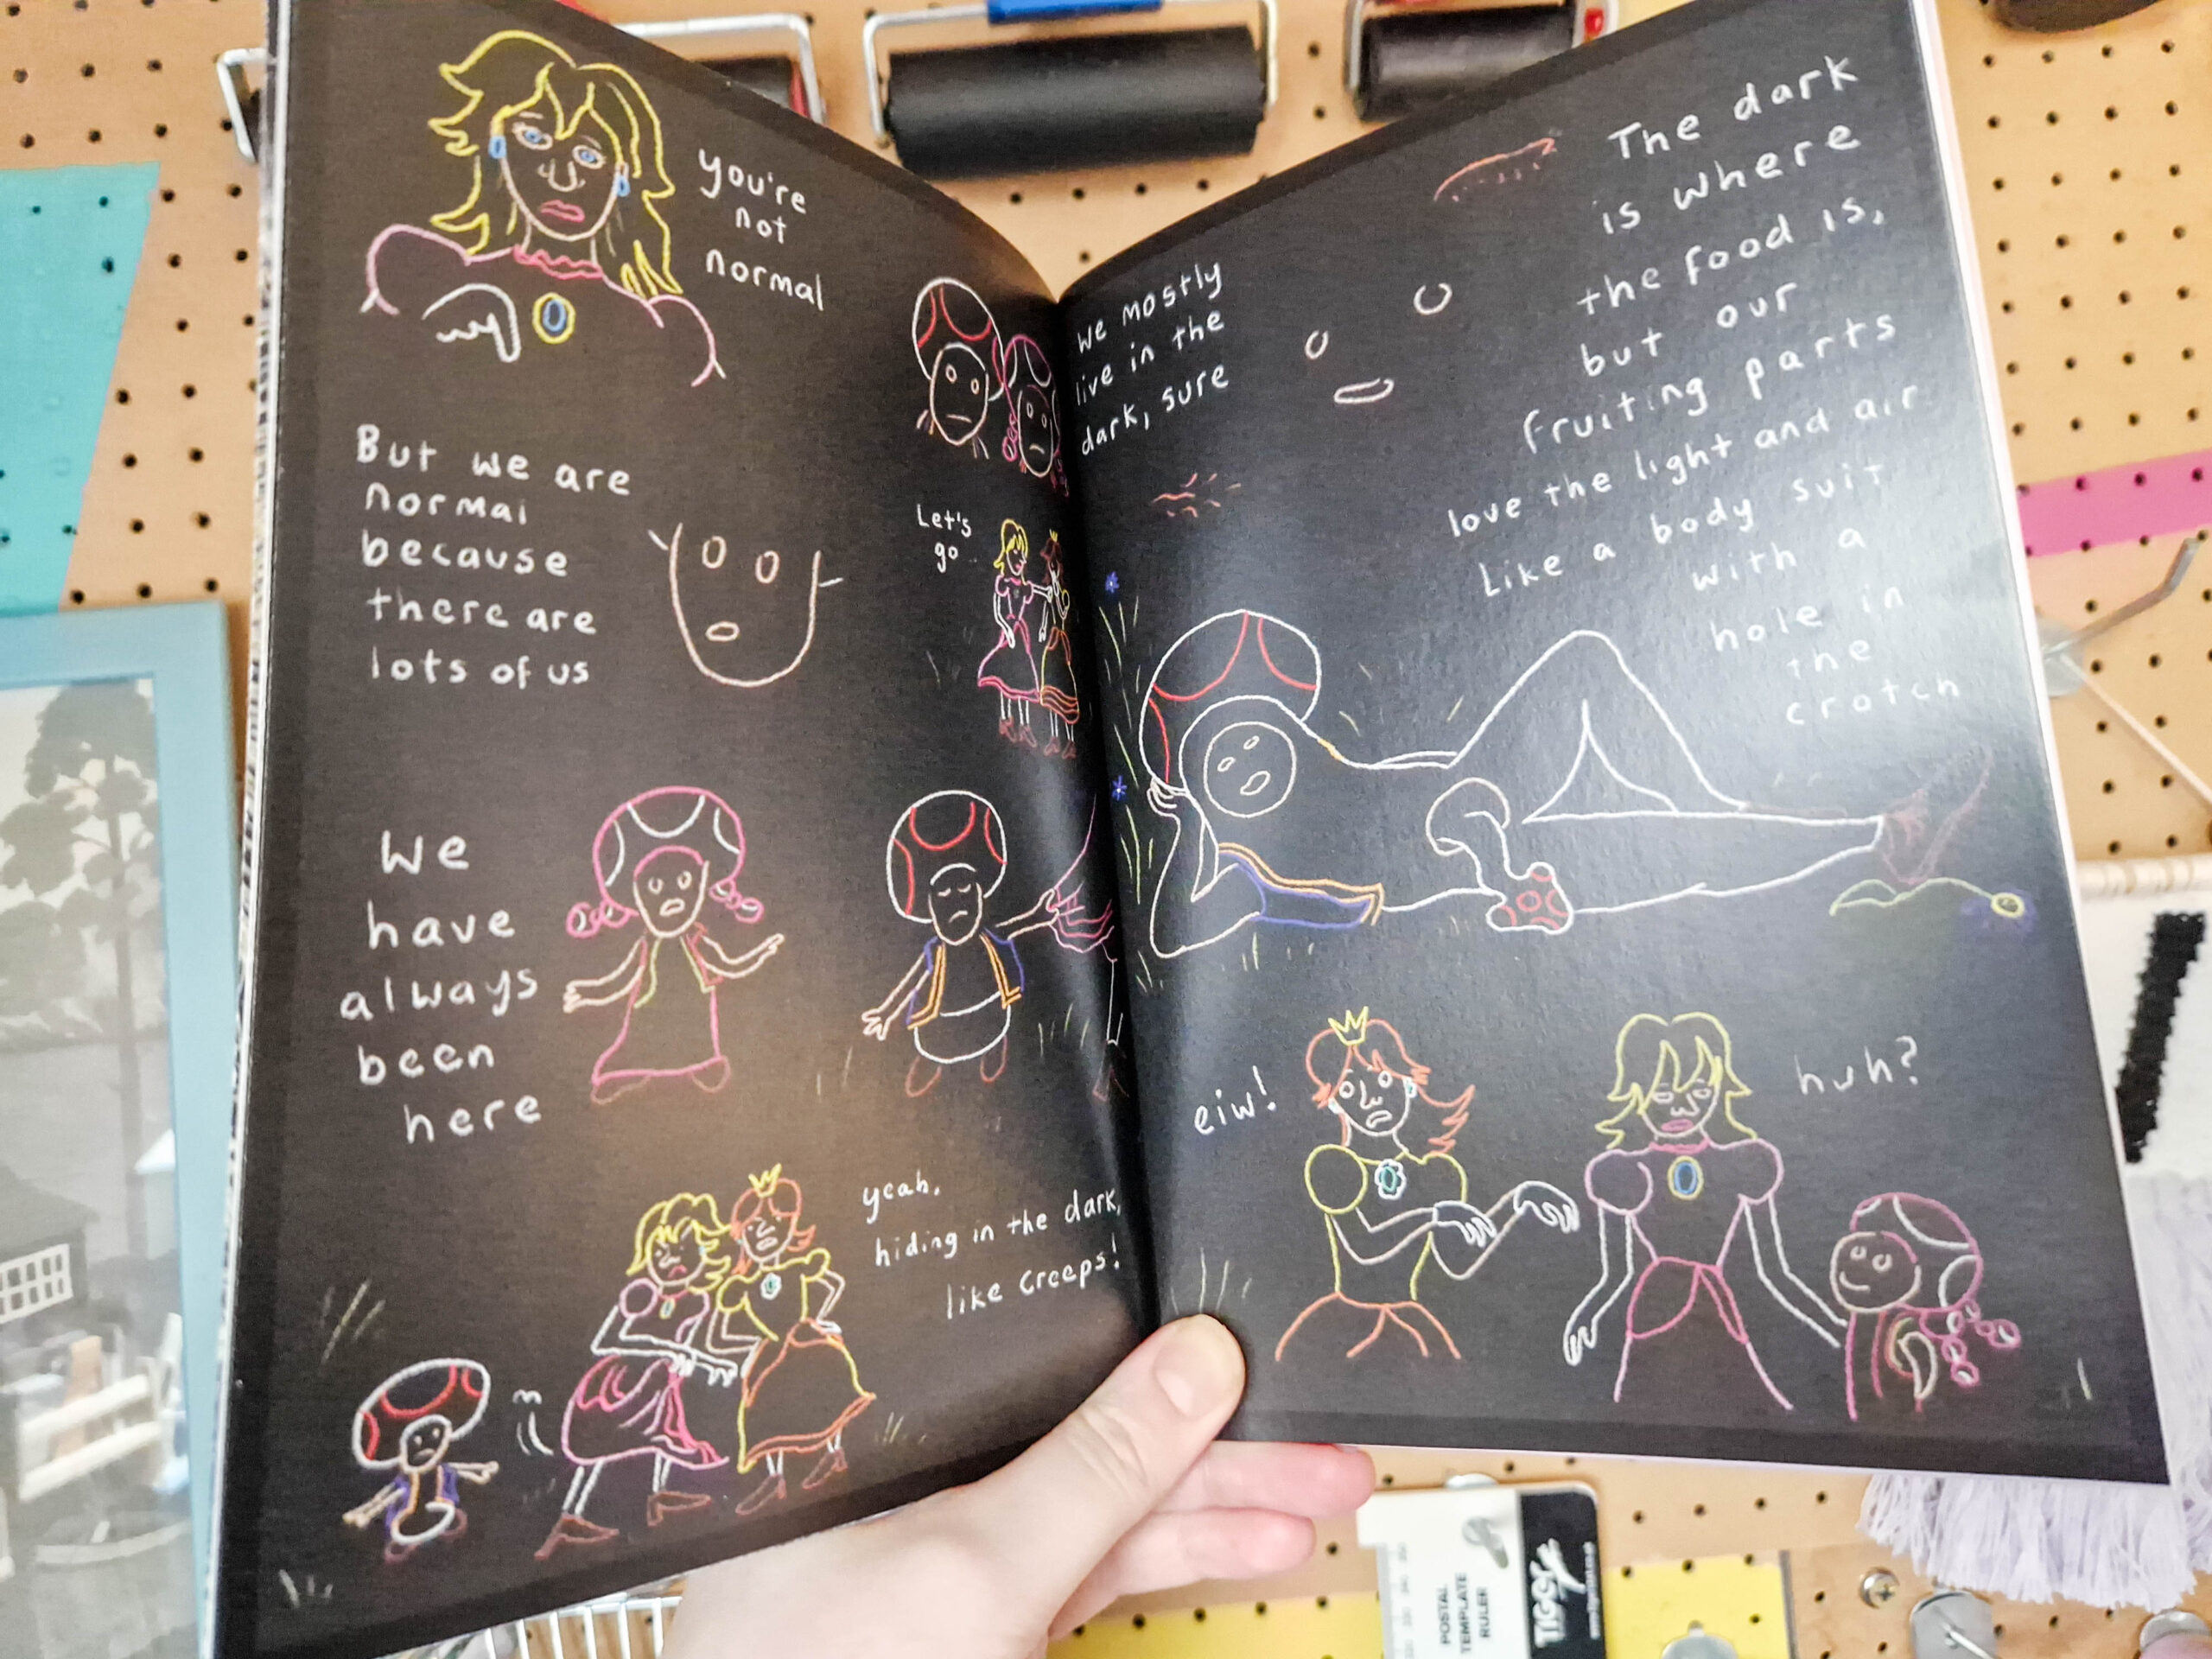 you're
not
normal
But we are
normal
because
there are
lots of us
Let's
go
We
have
always
been
here
yeah,
hiding in the dark,
like creeps!
we mostly
live in the
dark, sure
The dark
is where
the food is,
but our
fruiting parts
love the light and air
Like a body suit
with a
hole in
the
crotch
eiw!
huh?
POSTAL
TEMPLATE
RULER